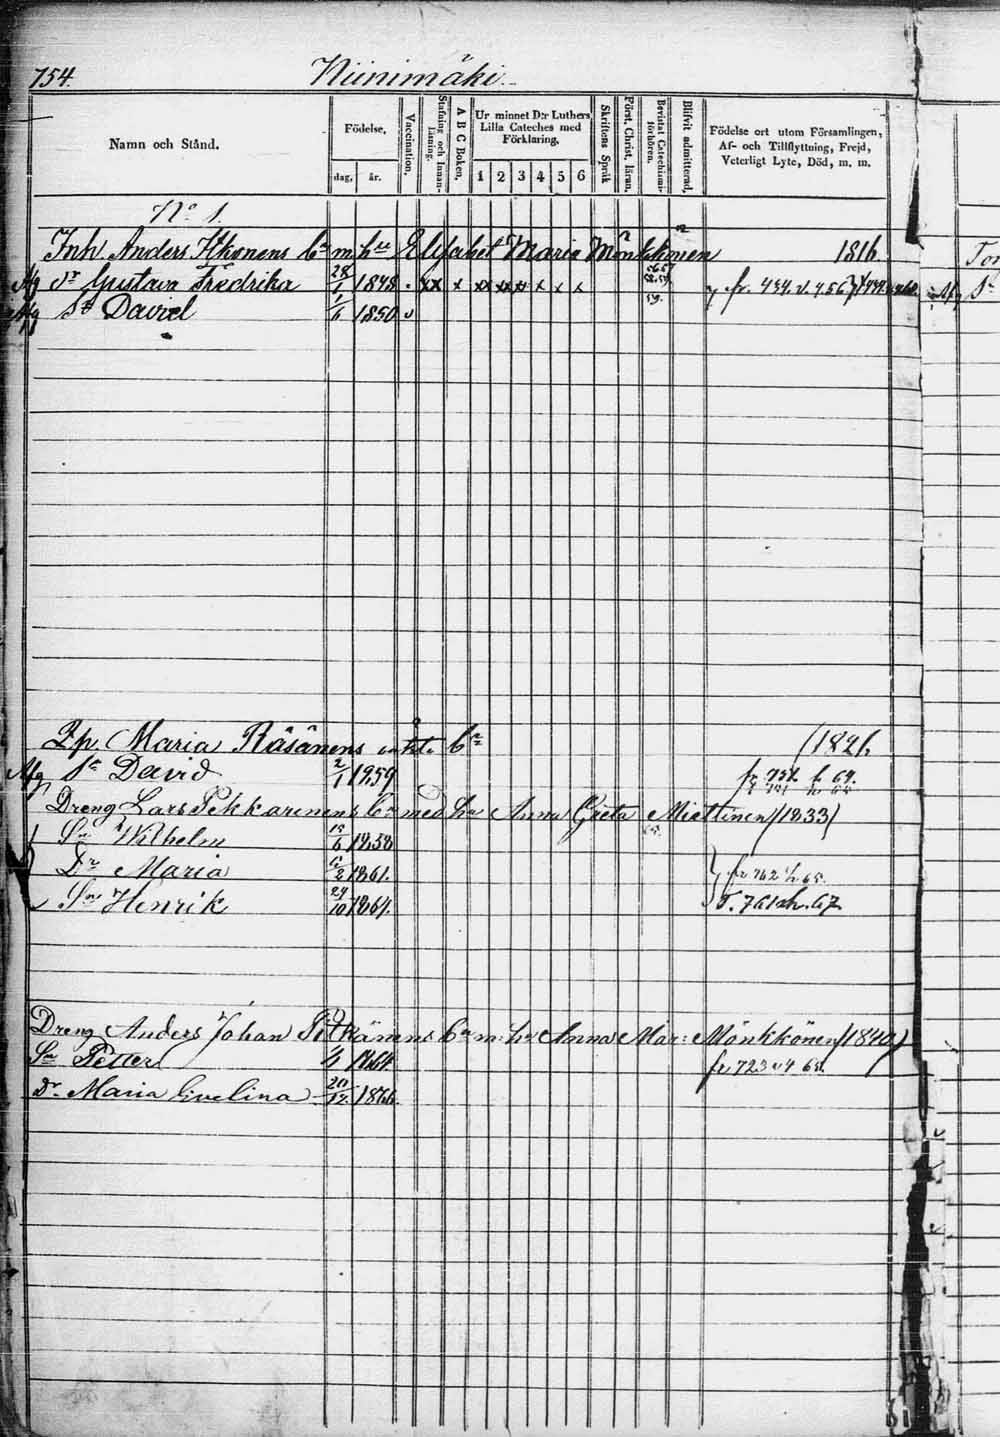 754.
Niinimäki
Namn och Stånd.
Födelse,
dag, år.
Vaccination.
Stafning och Innan-Läsning.
A B C Boken,
Ur minnet D:r Luthers Lilla Cateches med Förklaring,
1 2 3 4 5 6
Skriftens Språk
Först. Christ. läran.
Bevistat Catechismi-förhören.
Blifvit admitterad.
Födelse ort utom Församlingen, Af- och Tillflyttning, Frejd, Veterligt Lyte, Död, m. m.
No 1.
Inh. Anders Itkonens b:n m. h:u Elisabet Maria Mönkkönen 1816
Afg dr Gustava Fredrika 28/1 1848 . xx x x x x x x x fr. 434
Afg Sn David 1/6 1850
Maria Räsänens b:n /1826
Afg Sn David 2/1 1859
Dreng Lars Pekkarinens b:n med hu Anna Greta Miettinen /1833/
Sn Wilhelm 15/6 1858
Dr Maria 1861. fr 762 h 65.
Sn Henrik 29/10 1864.
Dreng Anders Johan Pitkänens b:n m: hu Anna Mar: Mönkkönen /1840/
Sn Petter 4 1864 fr 723
Dr Maria Evelina 20/12 1866.